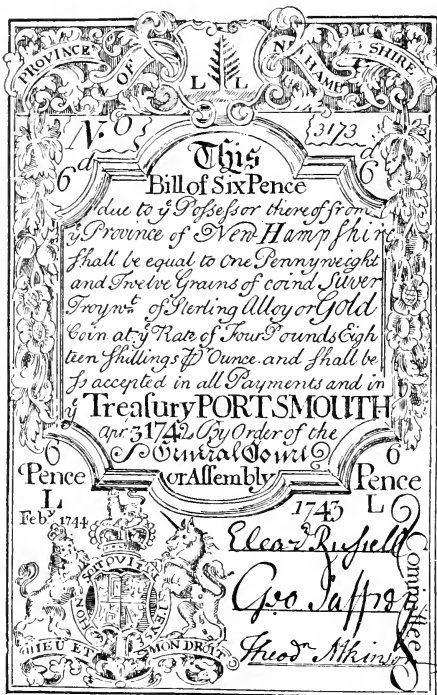 PROVINCE OF N HAMP SHIRE
L L
No 3173
6d 6d
This
Bill of Six Pence
due to ye Poſseſsor thereof from
ye Province of New Hampſhire
ſhall be equal to one Pennyweight
and Twelve Grains of coind Silver
Troywt. of Sterling Alloy or Gold
Coin at ye Rate of Four Pounds Eigh
teen Shillings ⅌ Ounce and ſhall be
ſo accepted in all Payments and in
ye Treaſury PORTSMOUTH
Apr. 3 1742 By Order of the
General Court
or Aſsembly
6 6
Pence Pence
L L
Feby. 1744 1743
HONI SOIT QUI MAL Y PENSE
DIEU ET MON DROIT
Eleazr Ruſsell
Geo Jaffrey
Theodr Atkinson
Committee